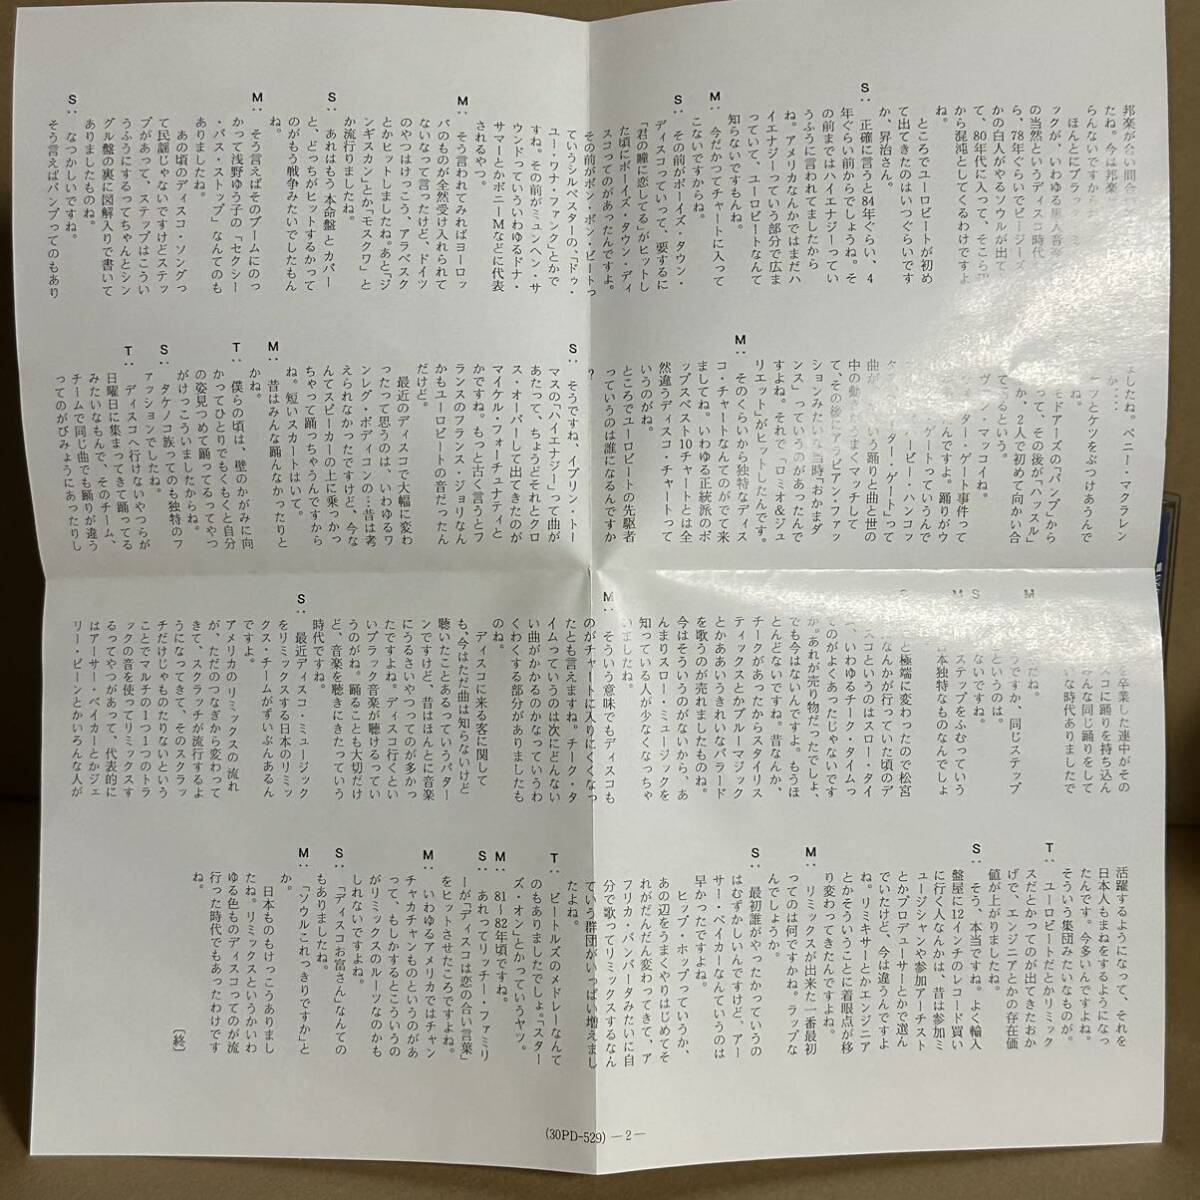 邦楽が合い間合
たね。今は邦楽
らんないですか
ほんとにブラ
ックが、いわゆる黒人音楽
の当然というディスコ時代
ら、78年ぐらいでビージー
かの白人がやるソウルが出て
て、80年代に入って、そこら
から混沌としてくるわけですよ
ね。
ところでユーロビートが初め
て出てきたのはいつぐらいです
か、昇治さん。
S: 正確に言うと84年ぐらい、4
年ぐらい前からでしょうね。そ
の前まではハイエナジーってい
うふうに言われてましたから
ね。アメリカなんかではまだハ
イエナジーっていう部分で広ま
っていて、ユーロビートなんて
知らないですもんね。
M: 今だかつてチャートに入って
こないですからね。
S: その前がボーイズ・タウン・
ディスコっていって、要するに
「君の瞳に恋してる」がヒットし
た頃にボーイズ・タウン・ディ
スコってのがあったんですよ。
その前がボン・ボン・ビートっ
ていうシルベスターの、「ドゥ・
ユー・ワナ・ファンク」とかで
すね。その前がミュンヘン・サ
ウンドっていういわゆるドナ・
サマーとかボニーMなどに代表
されるやつ。
M: そう言われてみればヨーロッ
パのものが全然受け入れられて
ないなって言ったけど、ドイツ
のやつはけっこう、アラベスク
とかヒットしましたね。あと「ジ
ンギスカン」とか「モスクワ」と
か流行りましたね。
S: あれはもう本命盤とカバー
と、どっちがヒットするかって
のがもう戦争みたいでしたもん
ね。
M: そう言えばそのブームにのっ
かって浅野ゆう子の「セクシー
・バス・ストップ」なんてのも
ありましたね。
あの頃のディスコ・ソングっ
て民謡じゃないですけどステッ
プがあって、ステップはこうい
うふうにするってちゃんとシン
グル盤の裏に図解入りで書いて
ありましたものね。
S: なつかしいですね。
そう言えばバンプってのもあり
ましたね。ペニー・マクラレン
か‥‥
ッとケツをぶつけあうんで
モドアーズの「バンプ」から
って、その後が「ハッスル」
か、2人で初めて向かい合
てやるという。
ヴァン・マッコイね。
ター・ゲート事件って
ービー・ハンコッ
ーター・ゲート」って
ゲートっていうんで
たんですよね。踊りがウ
曲が いう踊りと曲と世の
中の動 うまくマッチして
て、その後にアラビアン・ファッ
ションみたいな当時「おかまダ
ンス」っていうのがあったんで
すよね。それで「ロミオ&ジュ
リエット」がヒットしたんです。
M: そのくらいから独特なディス
コ・チャートなんてのがでて来
ましてね。いわゆる正統派のポ
ップスベスト10チャートとは全
然違うディスコ・チャートって
いうのがね。
ところでユーロビートの先駆者
っていうのは誰になるんですか
?
S: そうですね、イブリン・トー
マスの「ハイエナジー」って曲が
あたって、ちょうどそれとクロ
ス・オーバーして出てきたのが
マイケル・フォーチュナティと
かですね。もっと古く言うとフ
ランスのフランス・ジョリなん
かもユーロビートの音だったん
だけど。
最近のディスコで大幅に変わ
ったって思うのは、いわゆるワ
ンレグ・ボディコンの…昔は考
えられなかったですけど、今な
んてスピーカーの上に乗っかっ
ちゃって踊っちゃうんですから
ね。短いスカートはいて。
M: 昔はみんな踊んなかったりと
かね。
T: 僕らの頃は、壁のかがみに向
かってひとりでもくもくと自分
の姿見つめて踊ってるってやつ
がけっこういましたからね。
S: タケノコ族ってのも独特のフ
ァッションでしたね。
T: ディスコへ行けないやつらが
日曜日に集まってきて踊ってる
みたいなもんで、そのチーム、
チームで同じ曲でも踊りが違う
ってのがびみょうにあったりし
だね。
を卒業した連中がその
スコに踊りを持ち込ん
んな同じ踊りをして
な時代もありましたで
うですか、同じステップ
というのは。
ステップをふむっていう
日本独特なものなんでしょ
と極端に変わったので松宮
なんかが行っていた頃のデ
スコというのはスロー・タイ
、いわゆるチーク・タイムっ
てのがよくあったじゃないです
か。あれが売り物だったでしょ、
でも今はないんですよ。もうほ
とんどないですね。昔なんか、
チークがあったからスタイリス
ティックスとかブルーマジック
とかああいうきれいなバラード
を歌うのが売れましたものね。
今はそういうのがないから、あ
んまりスロー・ミュージックを
知っている人が少なくなっちゃ
いましたね。
M: そういう意味でもディスコも
のがチャートに入りにくくなっ
たとも言えますね。チーク・タ
イムっていうのは次にどんない
い曲がかかるのかなっていうわ
くわくする部分がありましたも
のね。
ディスコに来る客に関して
も、今はただ曲は知らないけど
聴いたことあるっていうパター
ンですけど、昔はほんとに音楽
にうるさいやつってのが多かっ
たですよね。ディスコ行くとい
いブラック音楽が聴けるってい
うのがね。踊ることも大切だけ
ど、音楽を聴きにきたっていう
時代ですね。
S: 最近ディスコ・ミュージック
をリミックスする日本のリミッ
クス・チームがずいぶんあるん
ですよ。
アメリカのリミックスの流れ
が、ただのつなぎから変わって
きて、スクラッチが流行するよ
うになってきて、そのスクラッ
チだけじゃものたりないという
ことでマルチの1つ1つのトラ
ックの音を使ってリミックスす
るってやつがあって、代表的に
はアーサー・ベイカーとかジェ
リー・ビーンとかいろんな人が
活躍するようになって、それを
日本人もまねをするようになっ
たんです。今多いんですよね。
そういう集団みたいなものが。
T: ユーロビートだとかリミック
スだとかってのが出てきたおか
げで、エンジニアとかの存在価
値が上がりましたね。
S: そう、本当ですね。よく輸入
盤屋に12インチのレコード買い
に行く人なんかは、昔は参加ミ
ュージシャンや参加アーチスト
とかプロデューサーとかで選ん
でいたけど、今は違うんですよ
ね。リミキサーとかエンジニア
とかそういうことに着眼点が移
り変わってきたんですよね。
M: リミックスが出来た一番最初
ってのは何ですかね。ラップな
んでしょうか。
S: 最初誰がやったかっていうの
はむずかしいんですけど、アー
サー・ベイカーなんていうのは
早かったですよね。
ヒップ・ホップっていうか、
あの辺をうまくやりはじめてそ
れがだんだん変わってきて、ア
フリカ・バンバータみたいに自
分で歌ってリミックスするなん
ていう群団がいっぱい増えまし
たよね。
T: ビートルズのメドレーなんて
のもありましたでしょ。「スター
ズ・オン」とかっていうヤツ。
M: 81〜82年頃ですね。
S: あれってリッチー・ファミリ
ーが「ディスコは恋の合い言葉」
をヒットさせたころですよね。
M: いわゆるアメリカではチャン
チャカチャンものというのがあ
って、もしかするとこういうの
がリミックスのルーツなのかも
しれないですよね。
S: 「ディスコお富さん」なんての
もありましたね。
M: 「ソウルこれっきりですか」と
か。
日本ものもけっこうありまし
たね。リミックスというかいわ
ゆる色ものディスコってのが流
行った時代でもあったわけです
ね。
〔終〕
(30PD-529) —2—